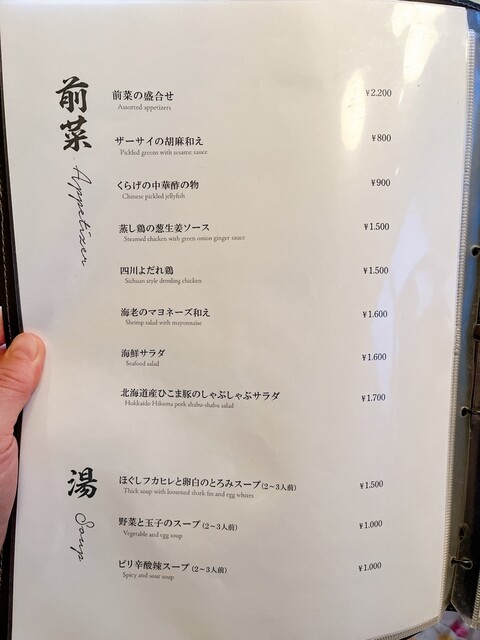 前菜
Appetizer
前菜の盛合せ ¥2.200
Assorted appetizers
ザーサイの胡麻和え ¥800
Pickled greens with sesame sauce
くらげの中華酢の物 ¥900
Chinese pickled jellyfish
蒸し鶏の葱生姜ソース ¥1.500
Steamed chicken with green onion ginger sauce
四川よだれ鶏 ¥1.500
Sichuan style drooling chicken
海老のマヨネーズ和え ¥1.600
Shrimp salad with mayonnaise
海鮮サラダ ¥1.600
Seafood salad
北海道産ひこま豚のしゃぶしゃぶサラダ ¥1.700
Hokkaido Hikoma pork shabu-shabu salad
湯
Soup
ほぐしフカヒレと卵白のとろみスープ(2〜3人前) ¥1.500
Thick soup with loosened shark fin and egg whites
野菜と玉子のスープ(2〜3人前) ¥1.000
Vegetable and egg soup
ピリ辛酸辣スープ(2〜3人前) ¥1.000
Spicy and sour soup